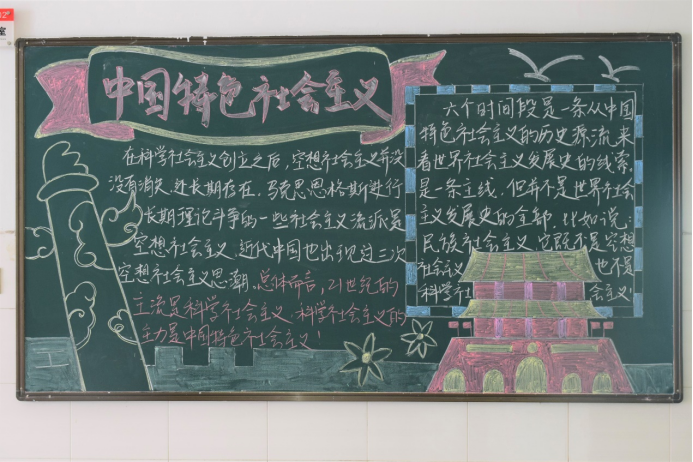 室
中国特色社会主义
在科学社会主义创立之后，空想社会主义并没
没有消失，还长期存在，马克思恩格斯进行
长期理论斗争的一些社会主义流派是
空想社会主义，近代中国也出现过三次
空想社会主义思潮。总体而言，21世纪的
主流是科学社会主义，科学社会主义的
主力是中国特色社会主义！
六个时间段是一条从中国
特色社会主义的历史源流来
看世界社会主义发展史的线索，
是一条主线，但并不是世界社会
主义发展史的全部，比如说：
民族社会主义，它既不是空想
社会义 也不是
科学社 会主义！